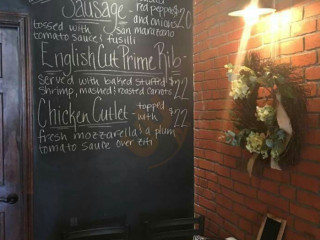 Sausage - red peppers $20
and onions
tossed with san marzano
tomato sauce & fusilli
English Cut Prime Rib -
served with baked stuffed $22
shrimp, mashed & roasted carrots
Chicken Cutlet - topped $22
with
fresh mozzarella & a plum
tomato sauce over ziti